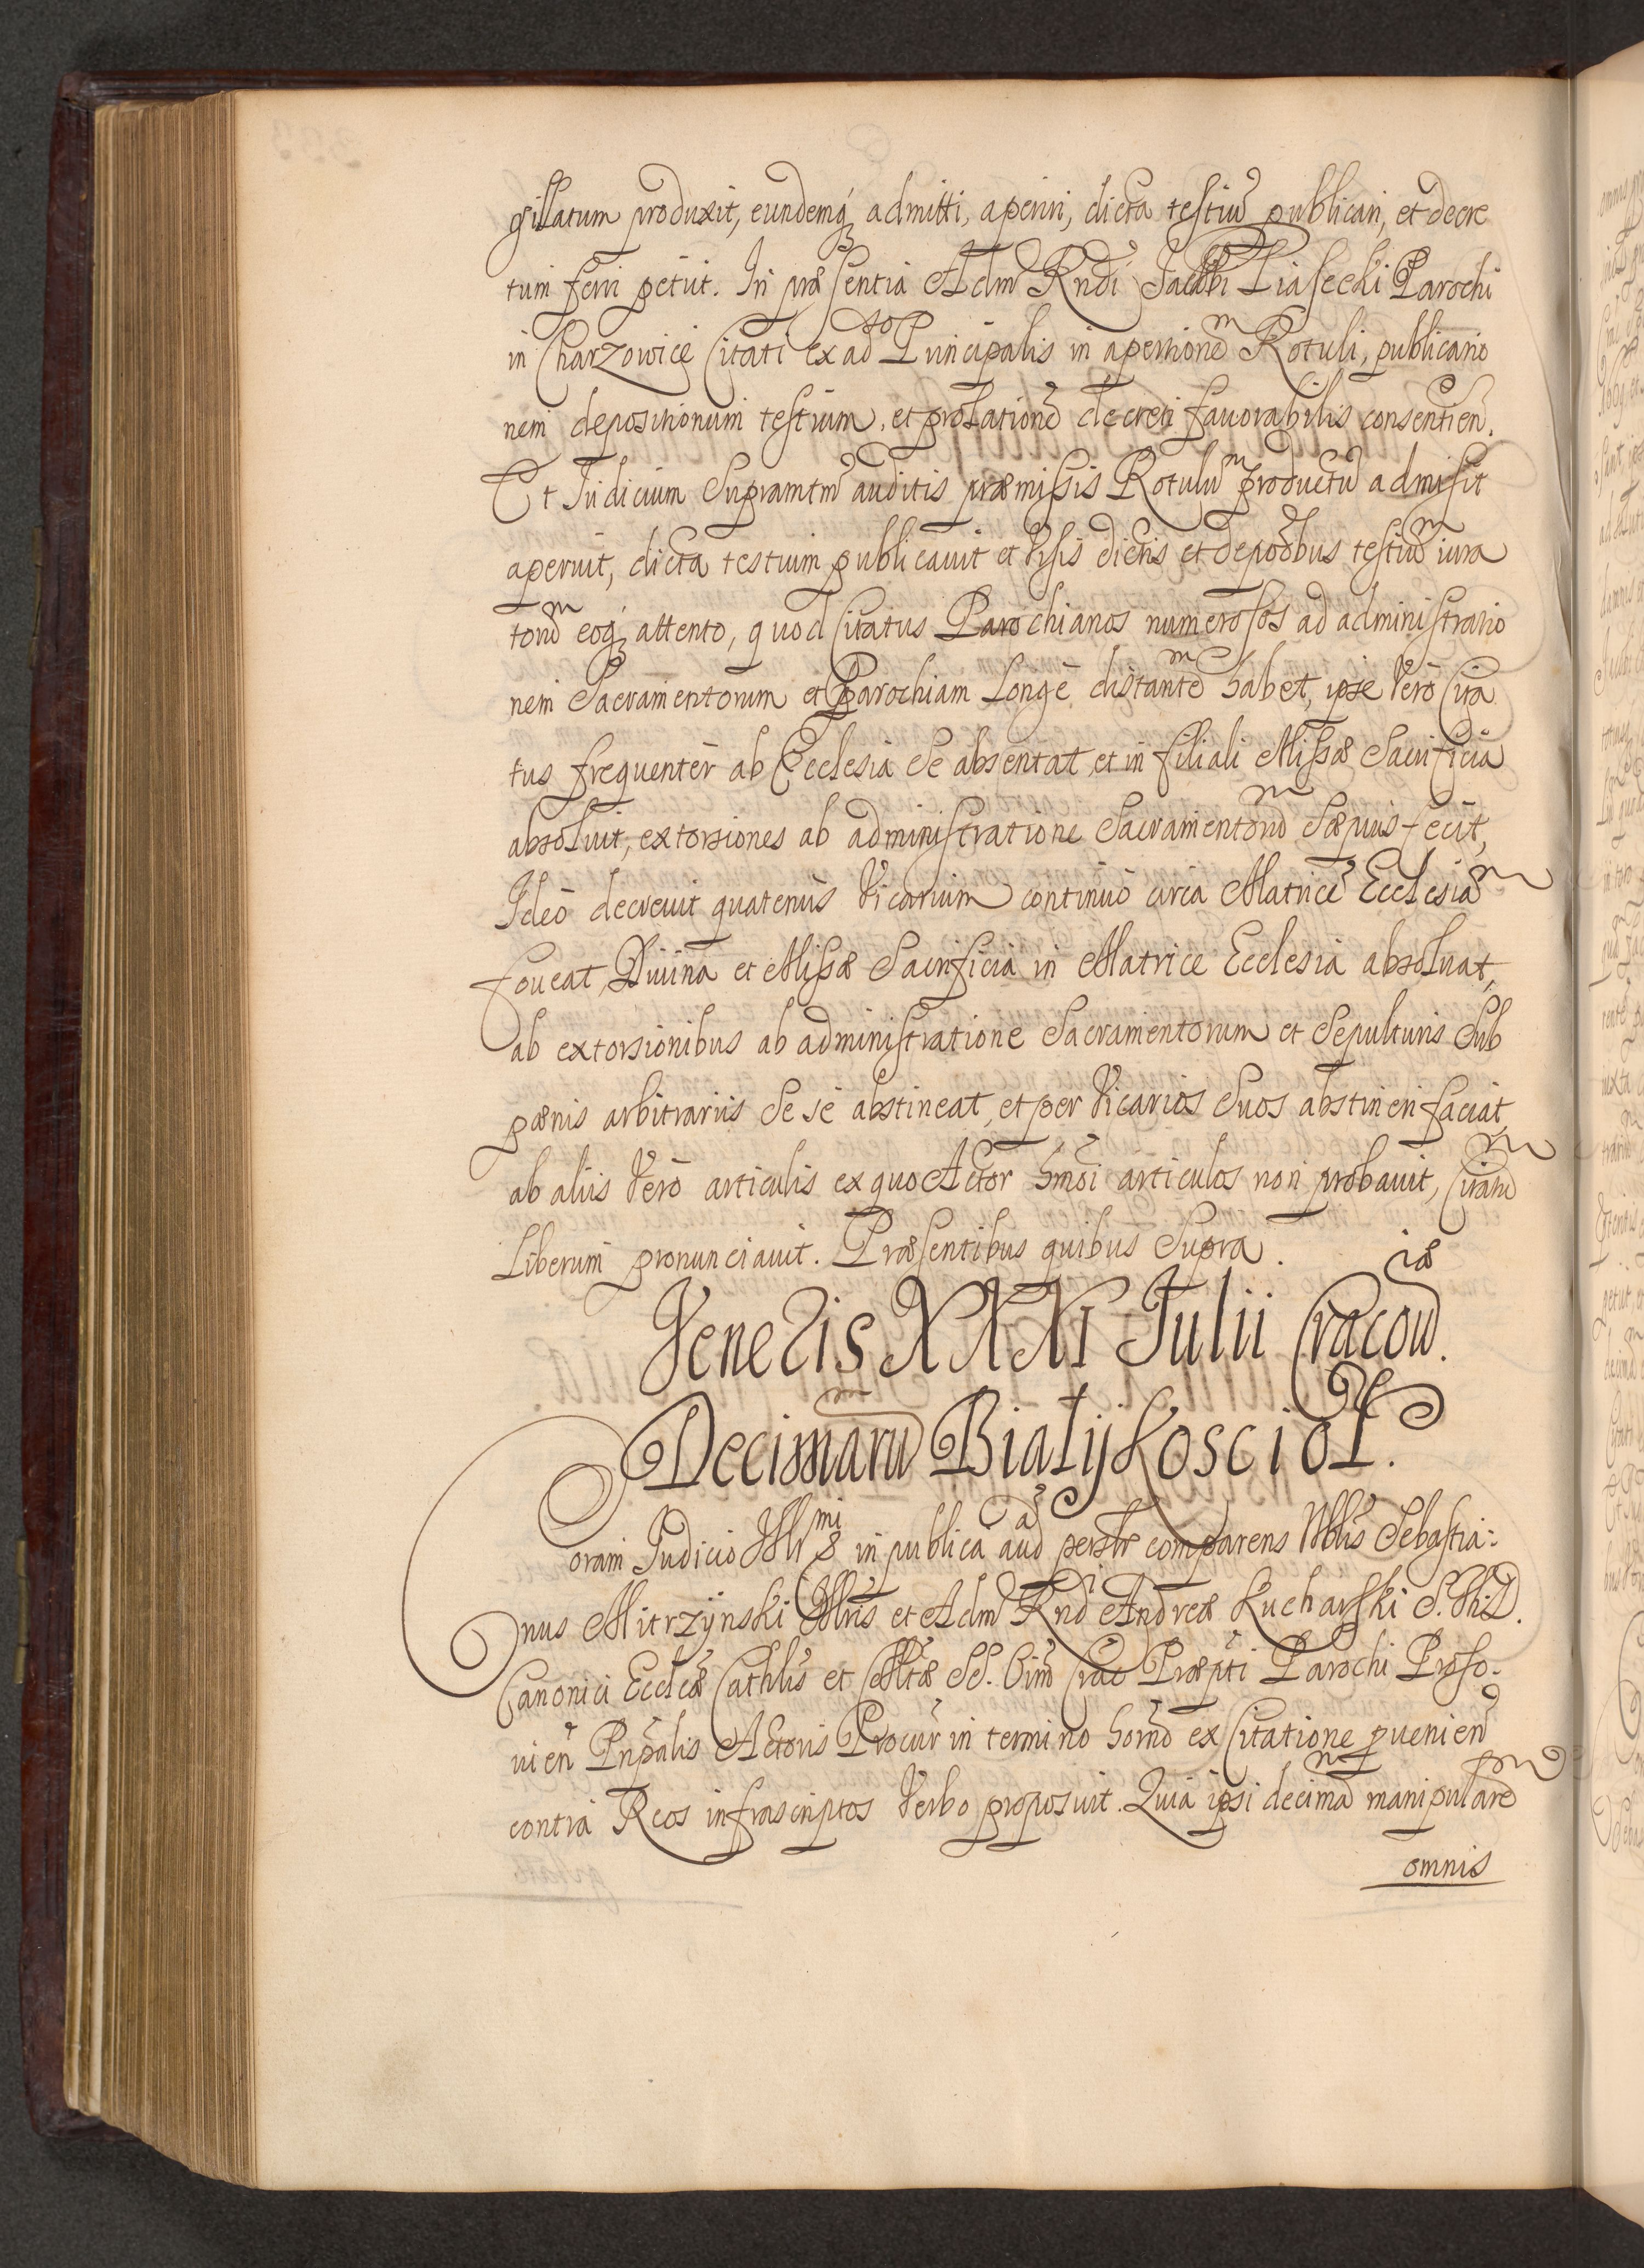 gillatum produxit, eundemq; admitti, aperiri, dicta testiũ publicari, et decre
tum ferri petiit. In præsentia Adm Rndi Jacobi Piasecki Parochi
in Charzowice Citati ex ad Principalis in apertionẽ Rotuli, publicatio
nem depositionum testium, et prolationẽ decreti fauorabilis consentien.
Et Iudicium Supramtm auditis præmissis Rotulũ productũ admisit
aperuit, dicta testium publicauit et Visis dictis et depoõbus testiũ iura
torũ eoq; attento, quod Citatus Parochianos numerosos ad administratio
nem Sacramentorum et Parochiam Longe distantẽ habet, ipse Vero Cita
tus frequenter ab Ecclesia Se absentat, et in filiali Missæ Sacrificia
absoluit, extorsiones ab administratione Sacramentorũ Sæpius fecit,
Ideo decreuit quatenus Vicarium continuo circa Matricẽ Ecclesiã
foueat, Diuina et Missæ Sacrificia in Matrice Ecclesia absoluat,
ab extorsionibus ab administratione Sacramentorum et Sepulturis Sub
pænis arbitrariis Se se abstineat, et per Vicarios Suos abstineri faciat,
ab aliis Vero articulis ex quo Actor hmõi articulos non probauit, Citatũ
Liberum pronunciauit. Præsentibus quibus Supra.
Veneris XXXI Julii Cracouiæ.
Decimarũ Białykoscioł.
Coram Iudicio Illrmi &c in publica aud persltr comparens Nblis Sebastia-
nus Mitrzynski Illris et Adm Rndi Andreæ Kucharski S. Th. D.
Canonici Eccleæ Cathlis et Clltæ SS. Oim Crac Præpti Parochi Proso-
uien Pnpalis Actoris Procur in termino horno ex Citatione puenien
contra Reos infrascriptos Verbo proposuit. Quia ipsi decimã manipularẽ
omnis